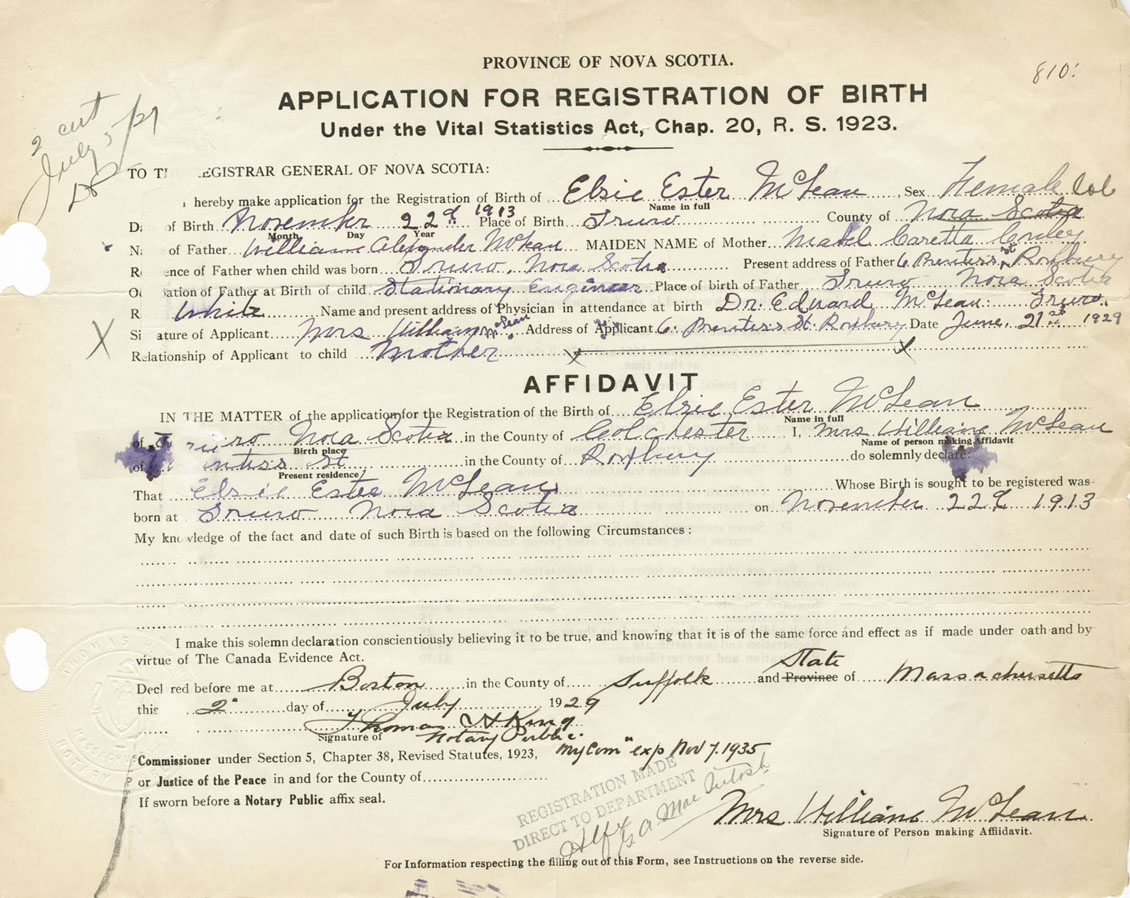 PROVINCE OF NOVA SCOTIA.
810
APPLICATION FOR REGISTRATION OF BIRTH
Under the Vital Statistics Act, Chap. 20, R. S. 1923.
2 cert
July 5
TO T EGISTRAR GENERAL OF NOVA SCOTIA:
I hereby make application for the Registration of Birth of Elsie Ester McLean Sex Female Col
Name in full
D of Birth November 22d 1913 Place of Birth Truro County of Nova Scotia
Month Day Year
N of Father William Alexander McLean MAIDEN NAME of Mother Mabel Caretta
R ence of Father when child was born Truro, Nova Scotia Present address of Father 6 Prentiss St Roxbury
O ation of Father at Birth of child Stationary Engineer Place of birth of Father Truro Nova Scotia
R White Name and present address of Physician in attendance at birth Dr. Edward McLean. Truro.
Si ature of Applicant Mrs William McLean Address of Applicant 6 Prentiss St. Roxbury Date June, 21st 1929
Relationship of Applicant to child Mother
AFFIDAVIT
IN THE MATTER of the application for the Registration of the Birth of Elsie Ester McLean
Name in full
of Truro Nova Scotia in the County of Colchester I, Mrs William McLean
Birth place Name of person making Affidavit
of ntiss St in the County of Roxbury do solemnly declare
Present residence
That Elsie Ester McLean Whose Birth is sought to be registered was
born at Truro Nova Scotia on November 22d 1913
My knowledge of the fact and date of such Birth is based on the following Circumstances:
I make this solemn declaration conscientiously believing it to be true, and knowing that it is of the same force and effect as if made under oath and by
virtue of The Canada Evidence Act.
State
Decl red before me at Boston in the County of Suffolk and Province of Massachusetts
this 2" day of July 1929
Thomas H King
Signature of Notary Public
Commissioner under Section 5, Chapter 38, Revised Statutes, 1923, My Com" exp Nov 7. 1935
or Justice of the Peace in and for the County of
If sworn before a Notary Public affix seal.
REGISTRATION MADE
DIRECT TO DEPARTMENT
Hfx G A MacIntosh
Mrs William McLean
Signature of Person making Affidavit.
For Information respecting the filling out of this Form, see Instructions on the reverse side.